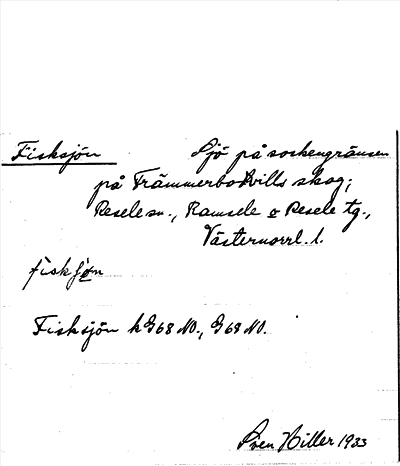 Fisksjön Sjö på sockengränsen
på Främmerbokvills skog;
Resele sn., Ramsele o Resele tg.,
Västernorrl. l.
fiskjøn
Fisksjön k G68 NO., G68 NO.
Sven Hiller 1933